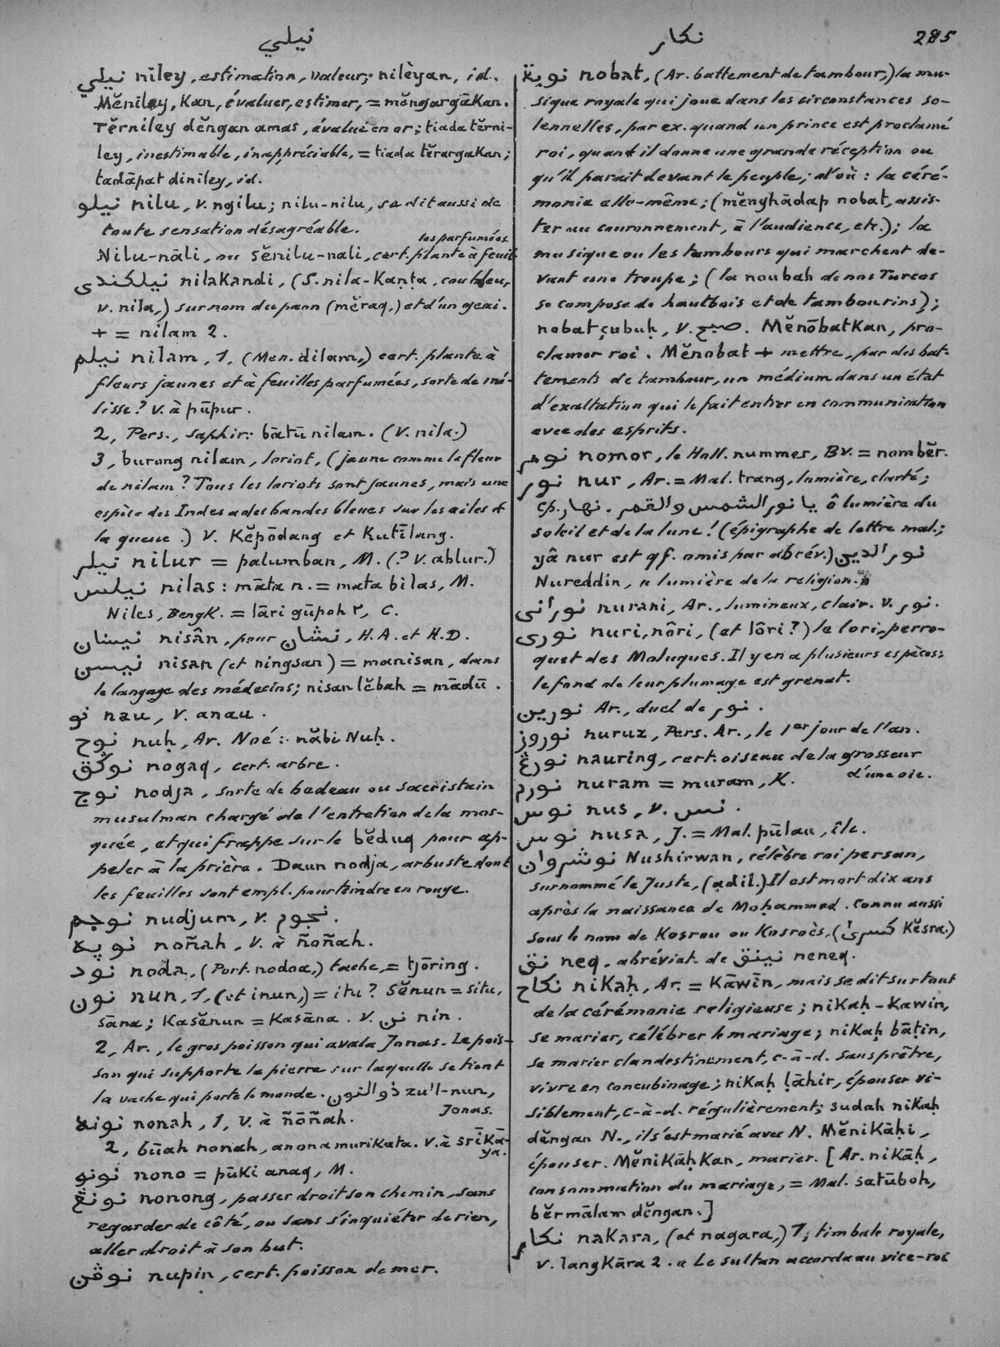 نيلي
نكار
285
نيلي niley, estimation, valeur; nilèyan, id.
Měniley, Kan, évaluer, estimer, = měngargāKan.
Těrniley děngan amas, évalué en or; tiada těrni-
ley, inestimable, inappréciable, = tiada těrargaKan;
tadāpat diniley, id.
نيلو nilu, v. ngilu; nilu-nilu, se dit aussi de
toute sensation désagréable.
Nilu-nāli, ou sěnilu-nali, cert. plante à feuil-
les parfumées.
نيلكندى nilaKandi, (S. nila-Kaṇṭa, cou bleu,
v. nila,) surnom du paon (měraq,) et d'un geai.
+ = nilam 2.
نيلم nilam, 1, (Men. dilam,) cert. plante à
fleurs jaunes et à feuilles parfumées, sorte de mé-
lisse? v. à pūpur.
2, Pers., saphir: bātū nilam. (v. nila.)
3, burong nilam, loriot, (jaune comme la fleur
de nilam? Tous les loriots sont jaunes, mais une
espèce des Indes a des bandes bleues sur les ailes &
la queue.) v. Kěpōdang et Kutīlang.
نيلر nilur = palumban, M. (? v. ablur.)
نيلس nilas: māta n. = mata bilas, M.
Niles, BengK. = lāri gūpoh ٢, C.
نيسان nisân, pour نشان, H.A. et H.D.
نيسن nisan (et ningsan) = manisan, dans
le langage des médecins; nisan lěbah = mādū.
نو nau, v. anau.
نوح nuh, Ar. Noé: năbi Nuḥ.
نوڬق nogaq, cert. arbre.
نوج nodja, sorte de bedeau ou sacristain
musulman chargé de l'entretien de la mos-
quée, et qui frappe sur le běduq pour ap-
peler à la prière. Daun nodja, arbuste dont
les feuilles sont empl. pour teindre en rouge.
نوجم nudjum, v. نجوم.
نوڽه noñah, v. à ñoñah.
نود noda, (Port. nodoa,) tache, = tjōring.
نون nun, 1, (et inun,) = itu? Sěnun = situ,
sāna; Kasěnun = Kasāna. v. نن nin.
2, Ar., le gros poisson qui avala Jonas. Le pois-
son qui supporte la pierre sur laquelle se tient
la vache qui porte le monde. ذوالنون zu'l-nun,
Jonas.
نونه nonah, 1, v. à ñōñah.
2, būah nonah, anona murikata. v. à srīKā-
ya.
نونو nono = pūki anaq, M.
نونڠ nonong, passer droit son chemin, sans
regarder de côté, ou sans s'inquiéter de rien,
aller droit à son but.
نوڤن nupin, cert. poisson de mer.
نوبة nobat, (Ar. battement de tambour,) la mu-
sique royale qui joue dans les circonstances so-
lennelles, par ex. quand un prince est proclamé
roi, quand il donne une grande réception ou
qu'il parait devant le peuple; d'où: la céré-
monie elle-même; (měnghādap nobat, assis-
ter au couronnement, à l'audience, etc.); la
musique ou les tambours qui marchent de-
vant une troupe; (la noubah de nos Turcos
se compose de hautbois et de tambourins);
nobat çubuḥ, v. صبح. MěnōbatKan, pro-
clamer roi. Měnobat + mettre, par des bat-
tements de tambour, un médium dans un état
d'exaltation qui le fait entrer en communication
avec des esprits.
نومر nomor, le Holl. nummer, Bv. = nomběr.
نور nur, Ar. = Mal. trang, lumière, clarté;
cp. نهار. يا نور الشمس والقمر ô lumière du
soleil et de la lune! (épigraphe de lettre mal.;
yâ nur est qf. omis par abrév.) نورالدين
Nureddin, « lumière de la religion. »
نورانى nurani, Ar., lumineux, clair. v. نور.
نورى nuri, nôri, (et lôri?) le lori, perro-
quet des Moluques. Il y en a plusieurs espèces;
le fond de leur plumage est grenat.
نورين Ar., duel de نور.
نوروز nuruz, Pers. Ar., le 1er jour de l'an.
نورڠ nauring, cert. oiseau de la grosseur
d'une oie.
نورم nuram = muram, K.
نوس nus, v. نس.
نوس nusa, J. = Mal. pūlau, île.
نوشروان Nushirwan, célèbre roi persan,
surnommé le Juste, (adil.) Il est mort dix ans
après la naissance de Moḥammed. Connu aussi
sous le nom de Kosrou ou Kosroès, (كسرىٰ Kěsra.)
نق neq, abréviat. de نينق neneq.
نكاح niKaḥ, Ar. = Kāwīn, mais se dit surtout
de la cérémonie religieuse; niKaḥ-Kawin,
se marier, célébrer le mariage; niKaḥ bāṭin,
se marier clandestinement, c-à-d. sans prêtre,
vivre en concubinage; niKaḥ ḷāhir, épouser vi-
siblement, c-à-d. régulièrement; sudah niKaḥ
děngan N., il s'est marié avec N. MěniKāḥi,
épouser. MěniKāḥKan, marier. [Ar. niKāḥ,
consommation du mariage, = Mal. satūboh,
běrmālam děngan.]
نكار naKara, (et nagara,) 1; timbale royale,
v. langKāra 2. « Le sultan accorda au vice-roi